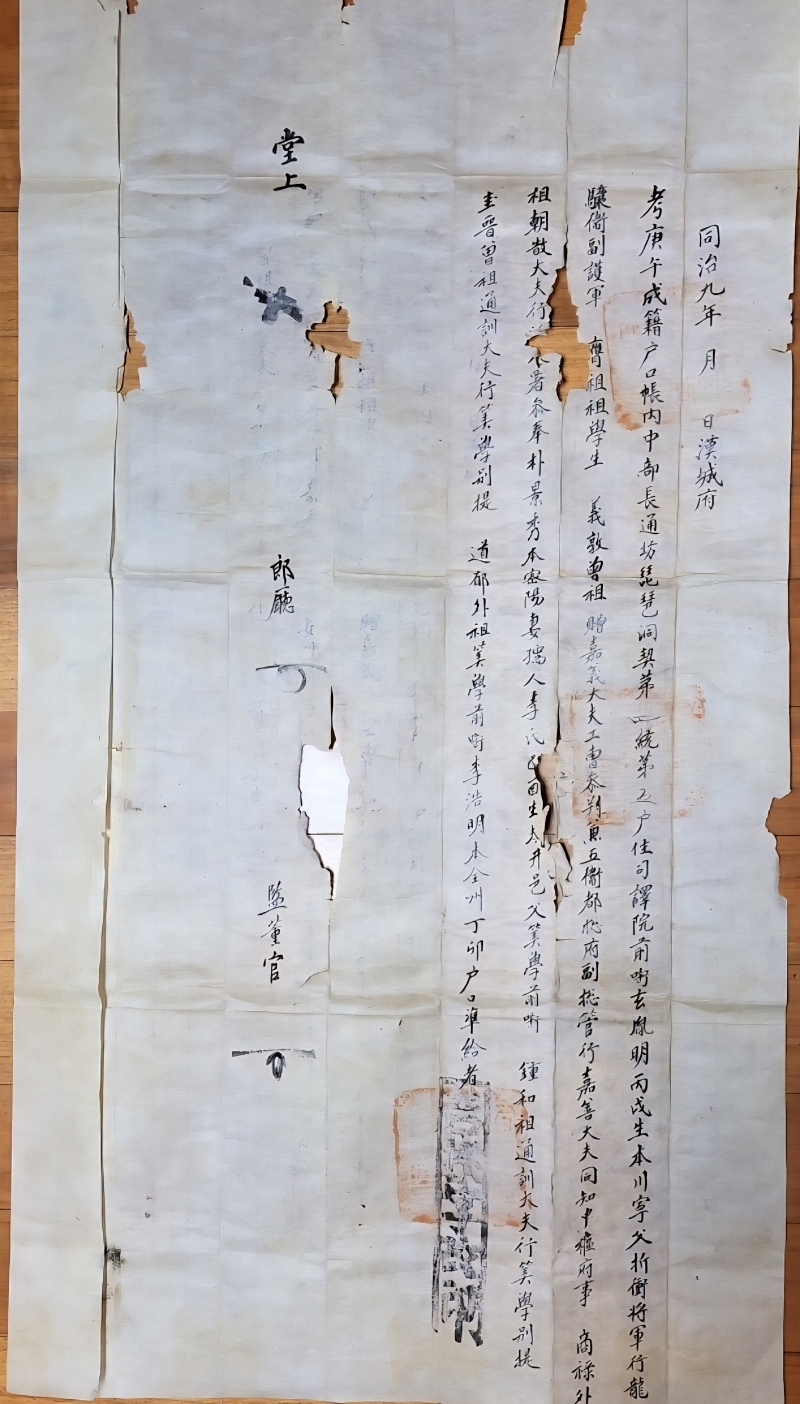 同治九年 月 日漢城府
考庚午成籍户口帳内中部長通坊琵琶洞契第四統第五户住司譯院前啣玄胤明丙戌生本川寧父折衝將軍行龍
驤衛副護軍 膺祖祖學生 義敦曾祖 贈嘉義大夫工曹參判兼五衛都摠府副摠管行嘉善大夫同知中樞府事 商祿外
祖朝散大夫行 署參奉朴景秀本密陽妻孺人李氏 酉生本井邑父筭學前啣 鍾和祖通訓大夫行筭學别提
圭晋曾祖通訓大夫行筭學别提 道郁外祖筭學前啣李浩明本全州丁卯户口準給者
堂上
郎廳
監董官